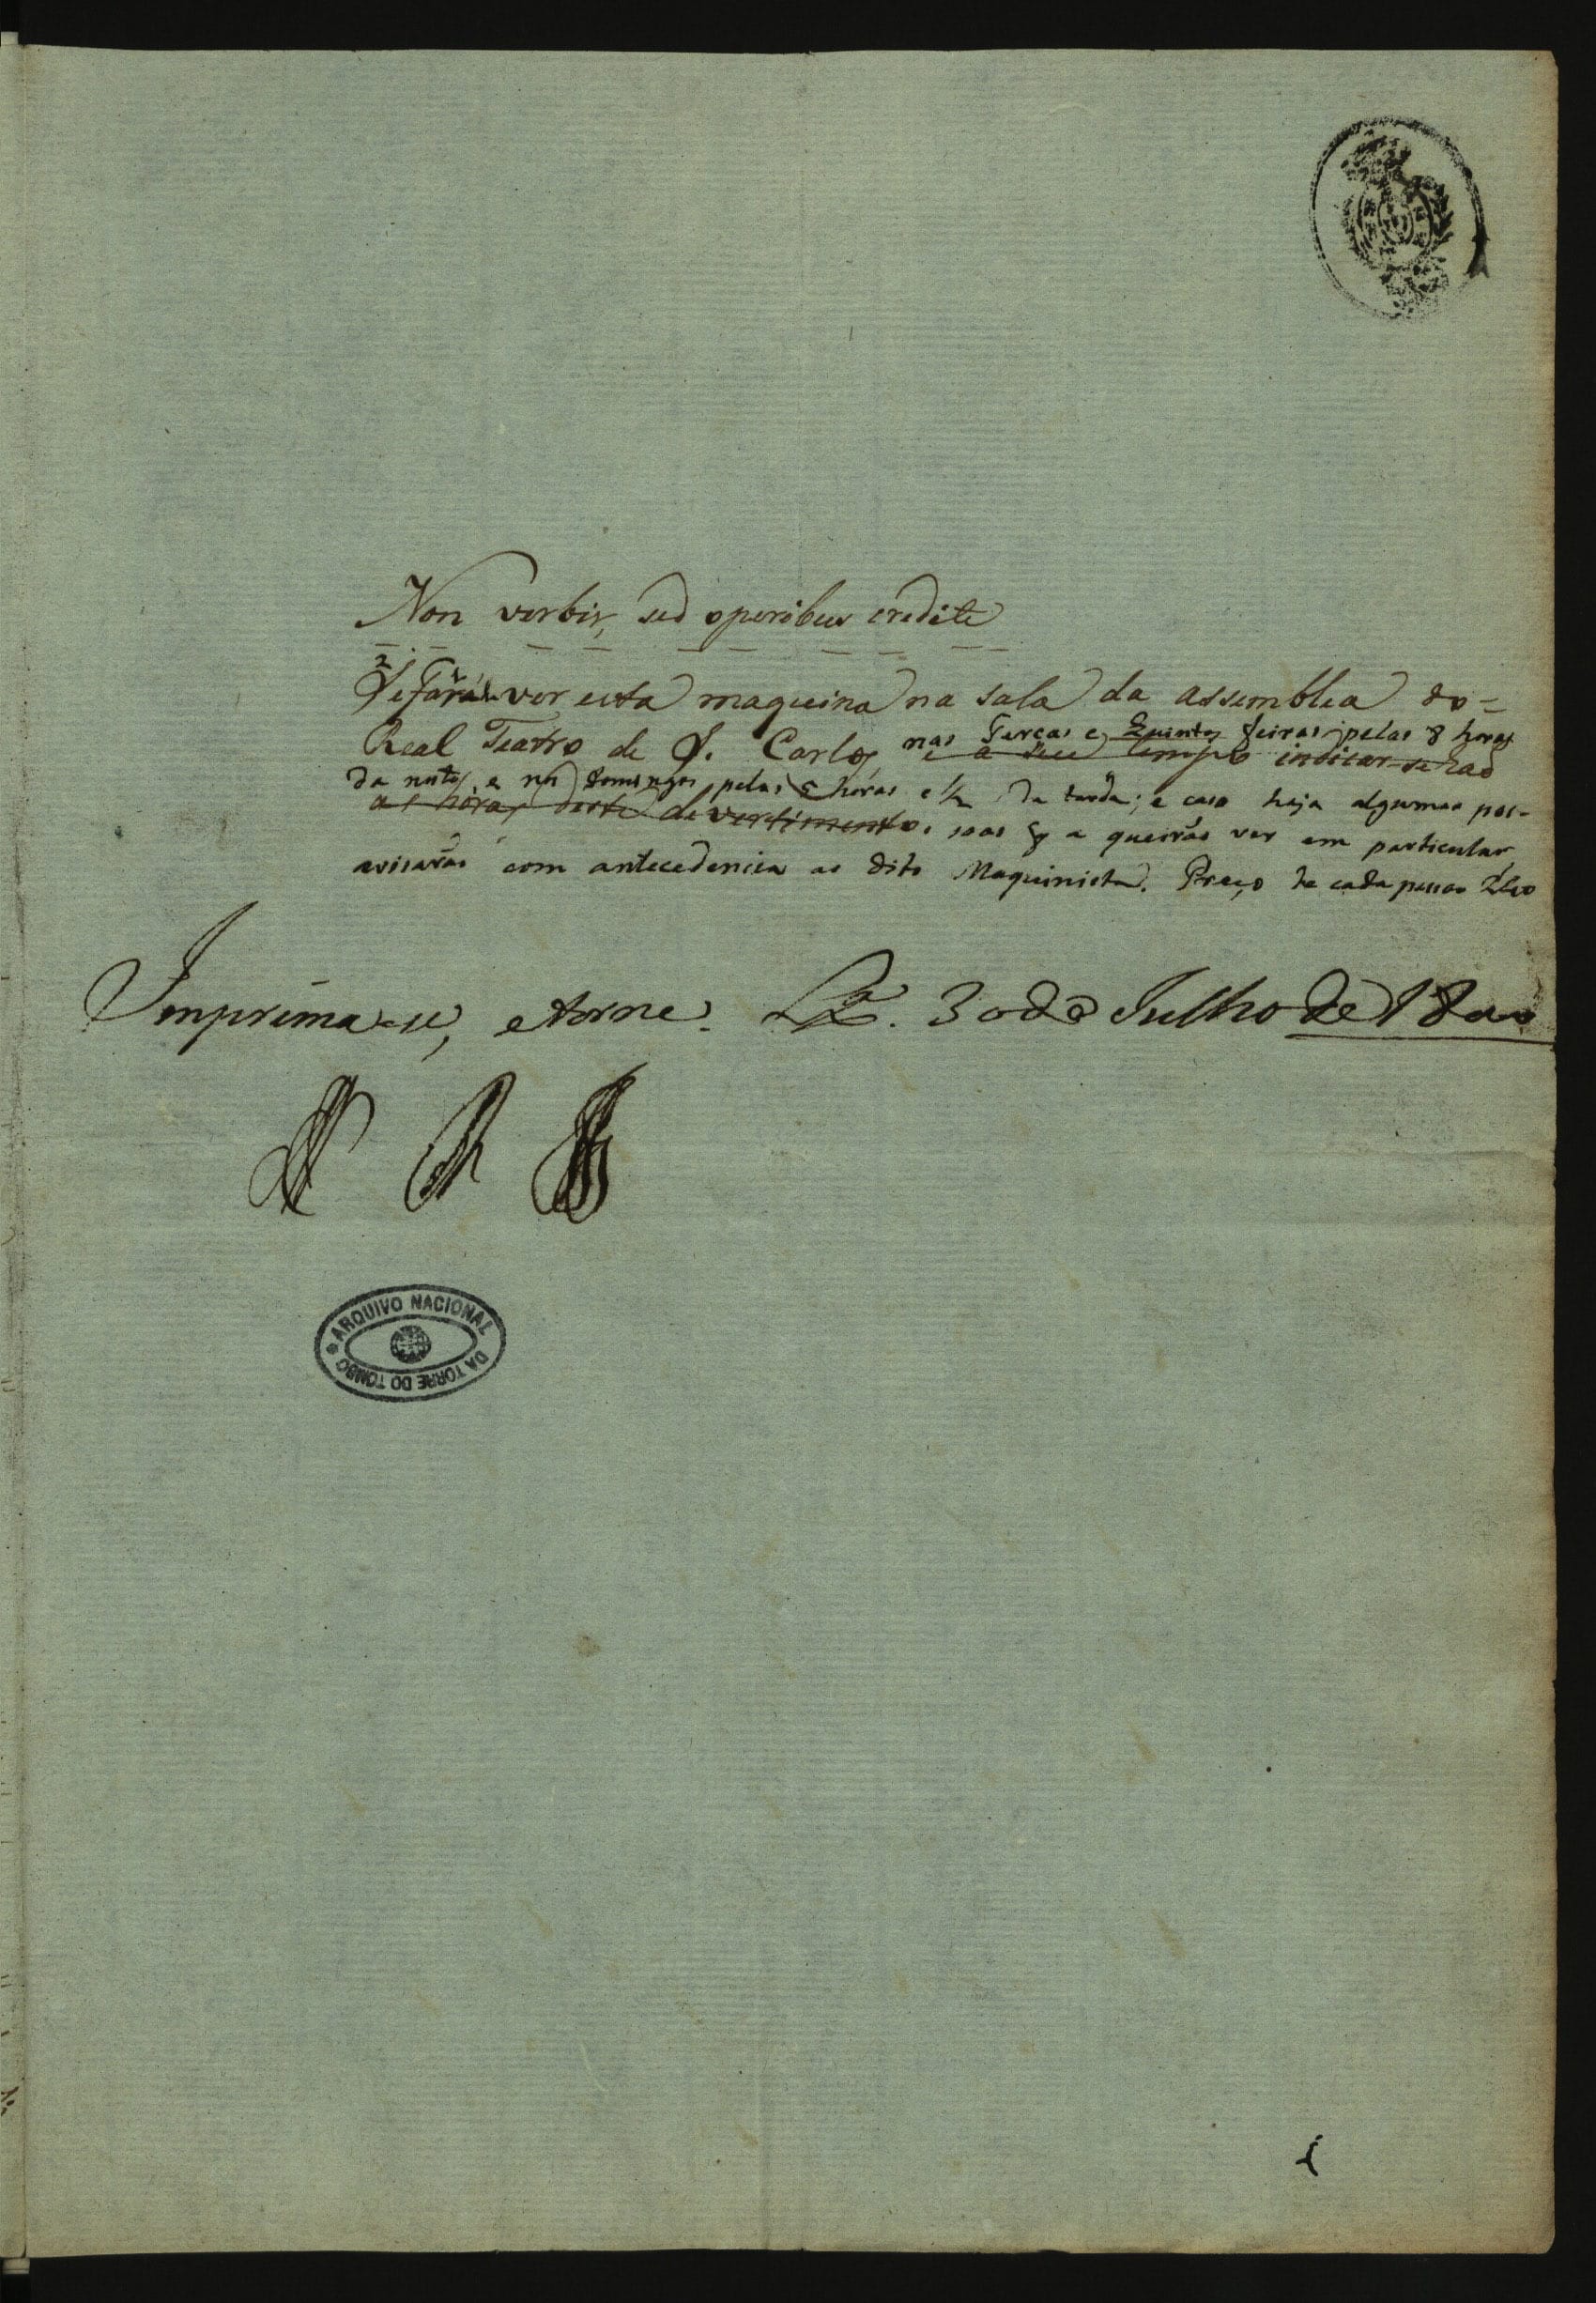 Non verbis, sed operibus credite
Se fará ver esta maquina na sala da assemblea do=
Real Teatro de S. Carlos nas Terças e Quintas feiras pelas 8 horas
e a seu tempo indicar-se-hão
da noite, e nos Domingos pelas 5 horas e ½ da tarde; e caso haja algumas pes-
as horas deste divertimento. soas q̃ a queirão ver em particular,
avisarão com antecedencia ao dito Maquinista. Preço de cada pessoa
Imprima-se, e torne. Lxª. 30 de Julho de 1800
ARQUIVO NACIONAL DA TORRE DO TOMBO